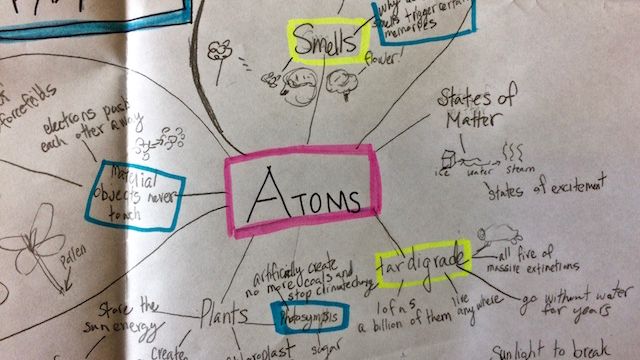 Smells
why
smells trigger certain
memories
flower!
forcefields
electrons push
each other away
Material
objects never
touch
Pollen
ATOMS
States of
Matter
ice
water
steam
States of excitement
tardigrade
all five of
massive extinctions
go without water
for years
live
anywhere
1 of n s
a billion of them
artificially create
no more coals and
stop climate change
Photosympsis
sugar
Plants
Store the
sun energy
Create
chloroplast
Sunlight to break